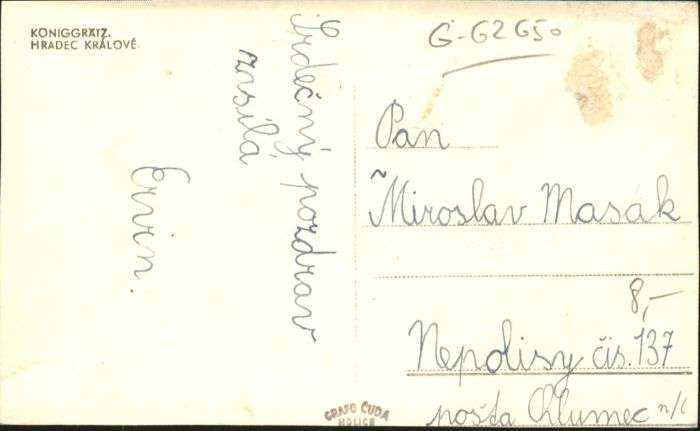 KÖNIGGRÄTZ.
HRADEC KRÁLOVÉ
Srdečný pozdrav
zasílá
Ervin.
G-62650
Pan
Miroslav Masák
8,-
Nepolisy čis. 137
pošta Chlumec n/C
GRAFO ČUDA
HOLICE